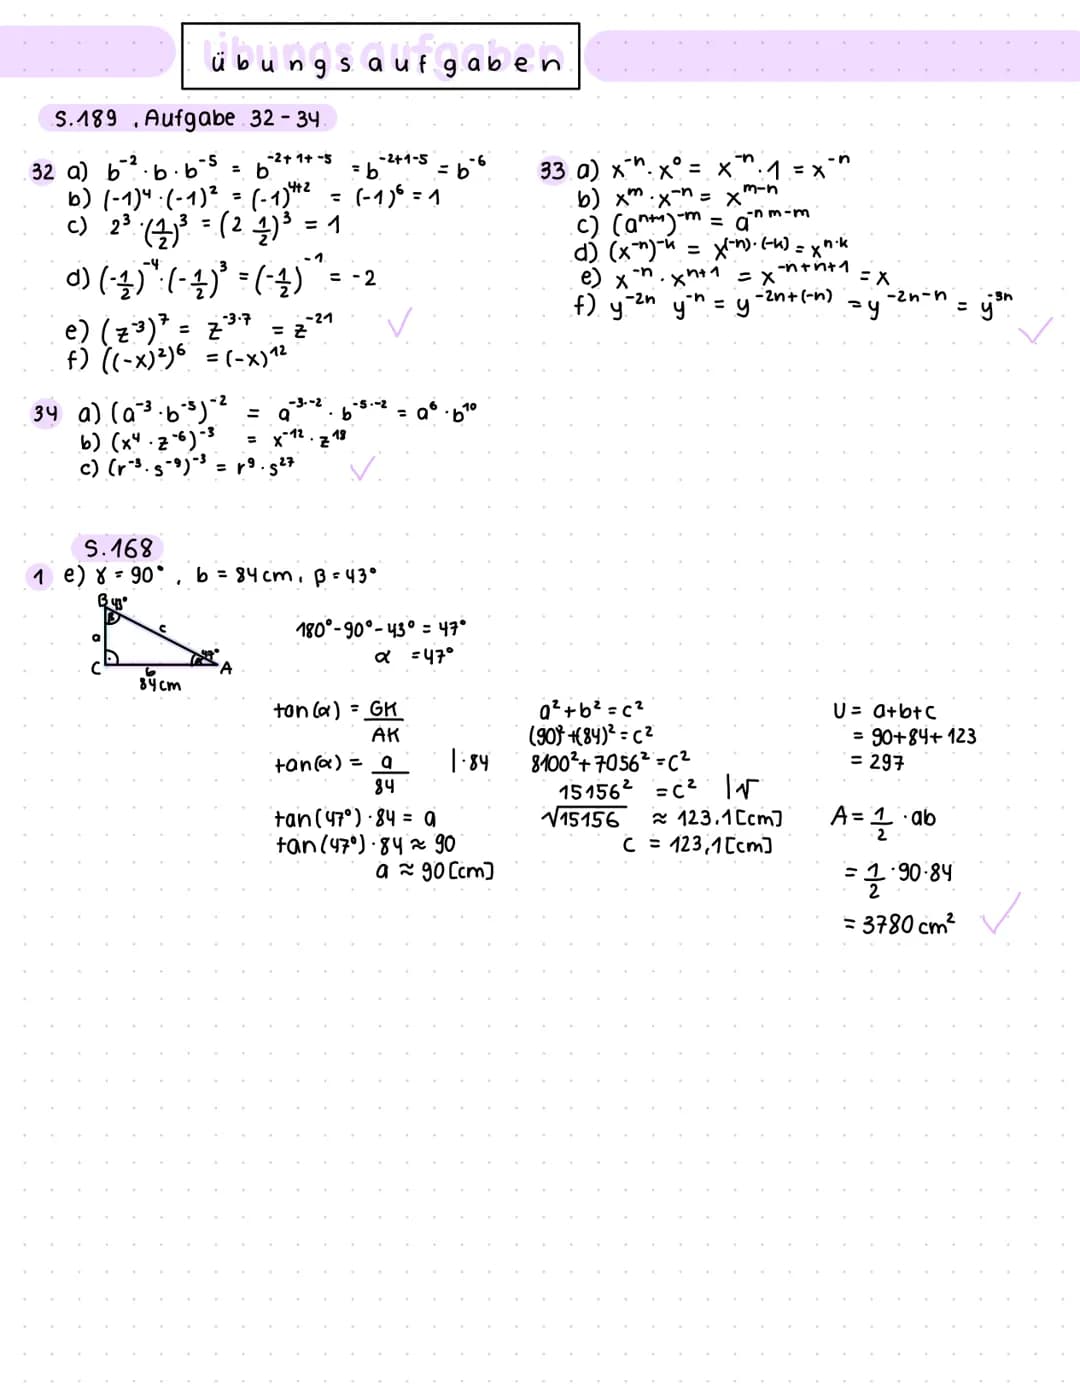 übungsaufgaben
S.189, Aufgabe 32-34
32 a) b⁻² · b · b⁻⁵ = b⁻²⁺¹⁺⁻⁵ = b⁻²⁺¹⁻⁵ = b⁻⁶
b) (-1)⁴ · (-1)² = (-1)⁴⁺² = (-1)⁶ = 1
c) 2³ · (1/2)³ = (2 1/2)³ = 1
d) (-1/2)⁻⁴ · (-1/2)³ = (-1/2)⁻¹ = -2
e) (z⁻³)⁷ = z⁻³·⁷ = z⁻²¹
f) ((-x)²)⁶ = (-x)¹²
33 a) x⁻ⁿ · x⁰ = x⁻ⁿ · 1 = x⁻ⁿ
b) xᵐ · x⁻ⁿ = xᵐ⁻ⁿ
c) (aⁿ⁺¹)⁻ᵐ = a⁻ⁿ ᵐ⁻ᵐ
d) (x⁻ⁿ)⁻ᵏ = x⁽⁻ⁿ⁾·⁽⁻ᵏ⁾ = xⁿ·ᵏ
e) x⁻ⁿ · xⁿ⁺¹ = x⁻ⁿ⁺ⁿ⁺¹ = x
f) y⁻²ⁿ y⁻ⁿ = y⁻²ⁿ⁺⁽⁻ⁿ⁾ = y⁻²ⁿ⁻ⁿ = y⁻³ⁿ
34 a) (a⁻³ · b⁻⁵)⁻² = a⁻³·⁻² · b⁻⁵·⁻² = a⁶ · b¹⁰
b) (x⁴ · z⁻⁶)⁻³ = x⁻¹² · z¹⁸
c) (r⁻³ · s⁻⁹)⁻³ = r⁹ · s²⁷
S.168
1 e) γ = 90°, b = 84cm, β = 43°
B 43°
β
a
c
C
b
A
84cm
180° - 90° - 43° = 47°
α = 47°
tan(α) = GK/AK
tan(α) = a/84 |·84
tan(47°) · 84 = a
tan(47°) · 84 ≈ 90
a ≈ 90[cm]
a² + b² = c²
(90)² + (84)² = c²
8100² + 7056² = c²
15156² = c² |√
√15156 ≈ 123.1[cm]
c = 123,1[cm]
U = a+b+c
= 90+84+123
= 297
A = 1/2 · ab
= 1/2 · 90 · 84
= 3780 cm²